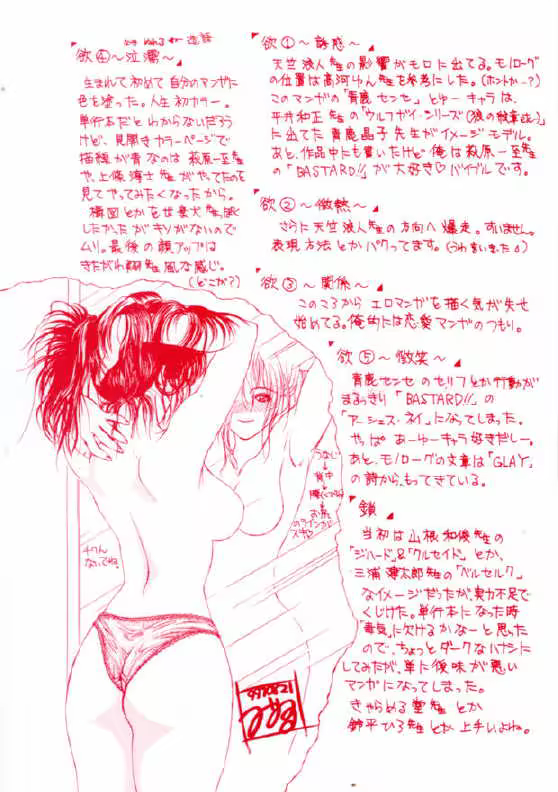 欲①～誘惑～
天竺浪人先生の影響がモロに出てる。モノローグ
の位置は高河ゆん先生を参考にした。(ホントかー?)
このマンガの「青鹿センセ」とゆーキャラは、
平井和正先生の「ウルフガイ・シリーズ」
に出てた青鹿晶子先生がイメージモデル。
あと、作品中にも書いたけど俺は萩原一至先生
の「BASTARD!!」が大好き♡バイブルです。
欲②～微熱～
さらに天竺浪人先生の方向へ爆走。すいません。
表現方法とかパクってます。
欲③～関係～
このころからエロマンガを描く気が失せ
始めてる。俺的には恋愛マンガのつもり。
欲④～泣濡～
生まれて初めて自分のマンガに
色を塗った。人生初カラー。
単行本だとわからないだろう
けど、見開きカラーページで
描線が青なのは萩原一至先生
や、上條淳士先生がやってたのを
見てやってみたくなったから。
構図とかを
したかったがキリがないので
ムリ。最後の顔アップは
きたがわ翔先生風な感じ。
(どこが?)
欲⑤～微笑～
青鹿センセのセリフとか行動が
まるっきり「BASTARD!!」の
「アーシェス・ネイ」になってしまった。
やっぱあーゆーキャラ好きだしー。
あと、モノローグの文章は「GLAY」
の詩から、もってきている。
鎖
当初は山根和俊先生の
「ジハード」&「クルセイド」とか、
三浦建太郎先生の「ベルセルク」
なイメージだったが、実力不足で
くじけた。単行本になった時
「毒気」に欠けるかなーと思った
ので、ちょっとダークなハナシに
してみたが、単に後味が悪い
マンガになってしまった。
きゃらめる堂先生とか
鈴平ひろ先生とか上手いよね。
うなじ
↓
背中
↓
腰(くびれ)
↓
お尻
のラインが
スキ♡
チクん
ないでね